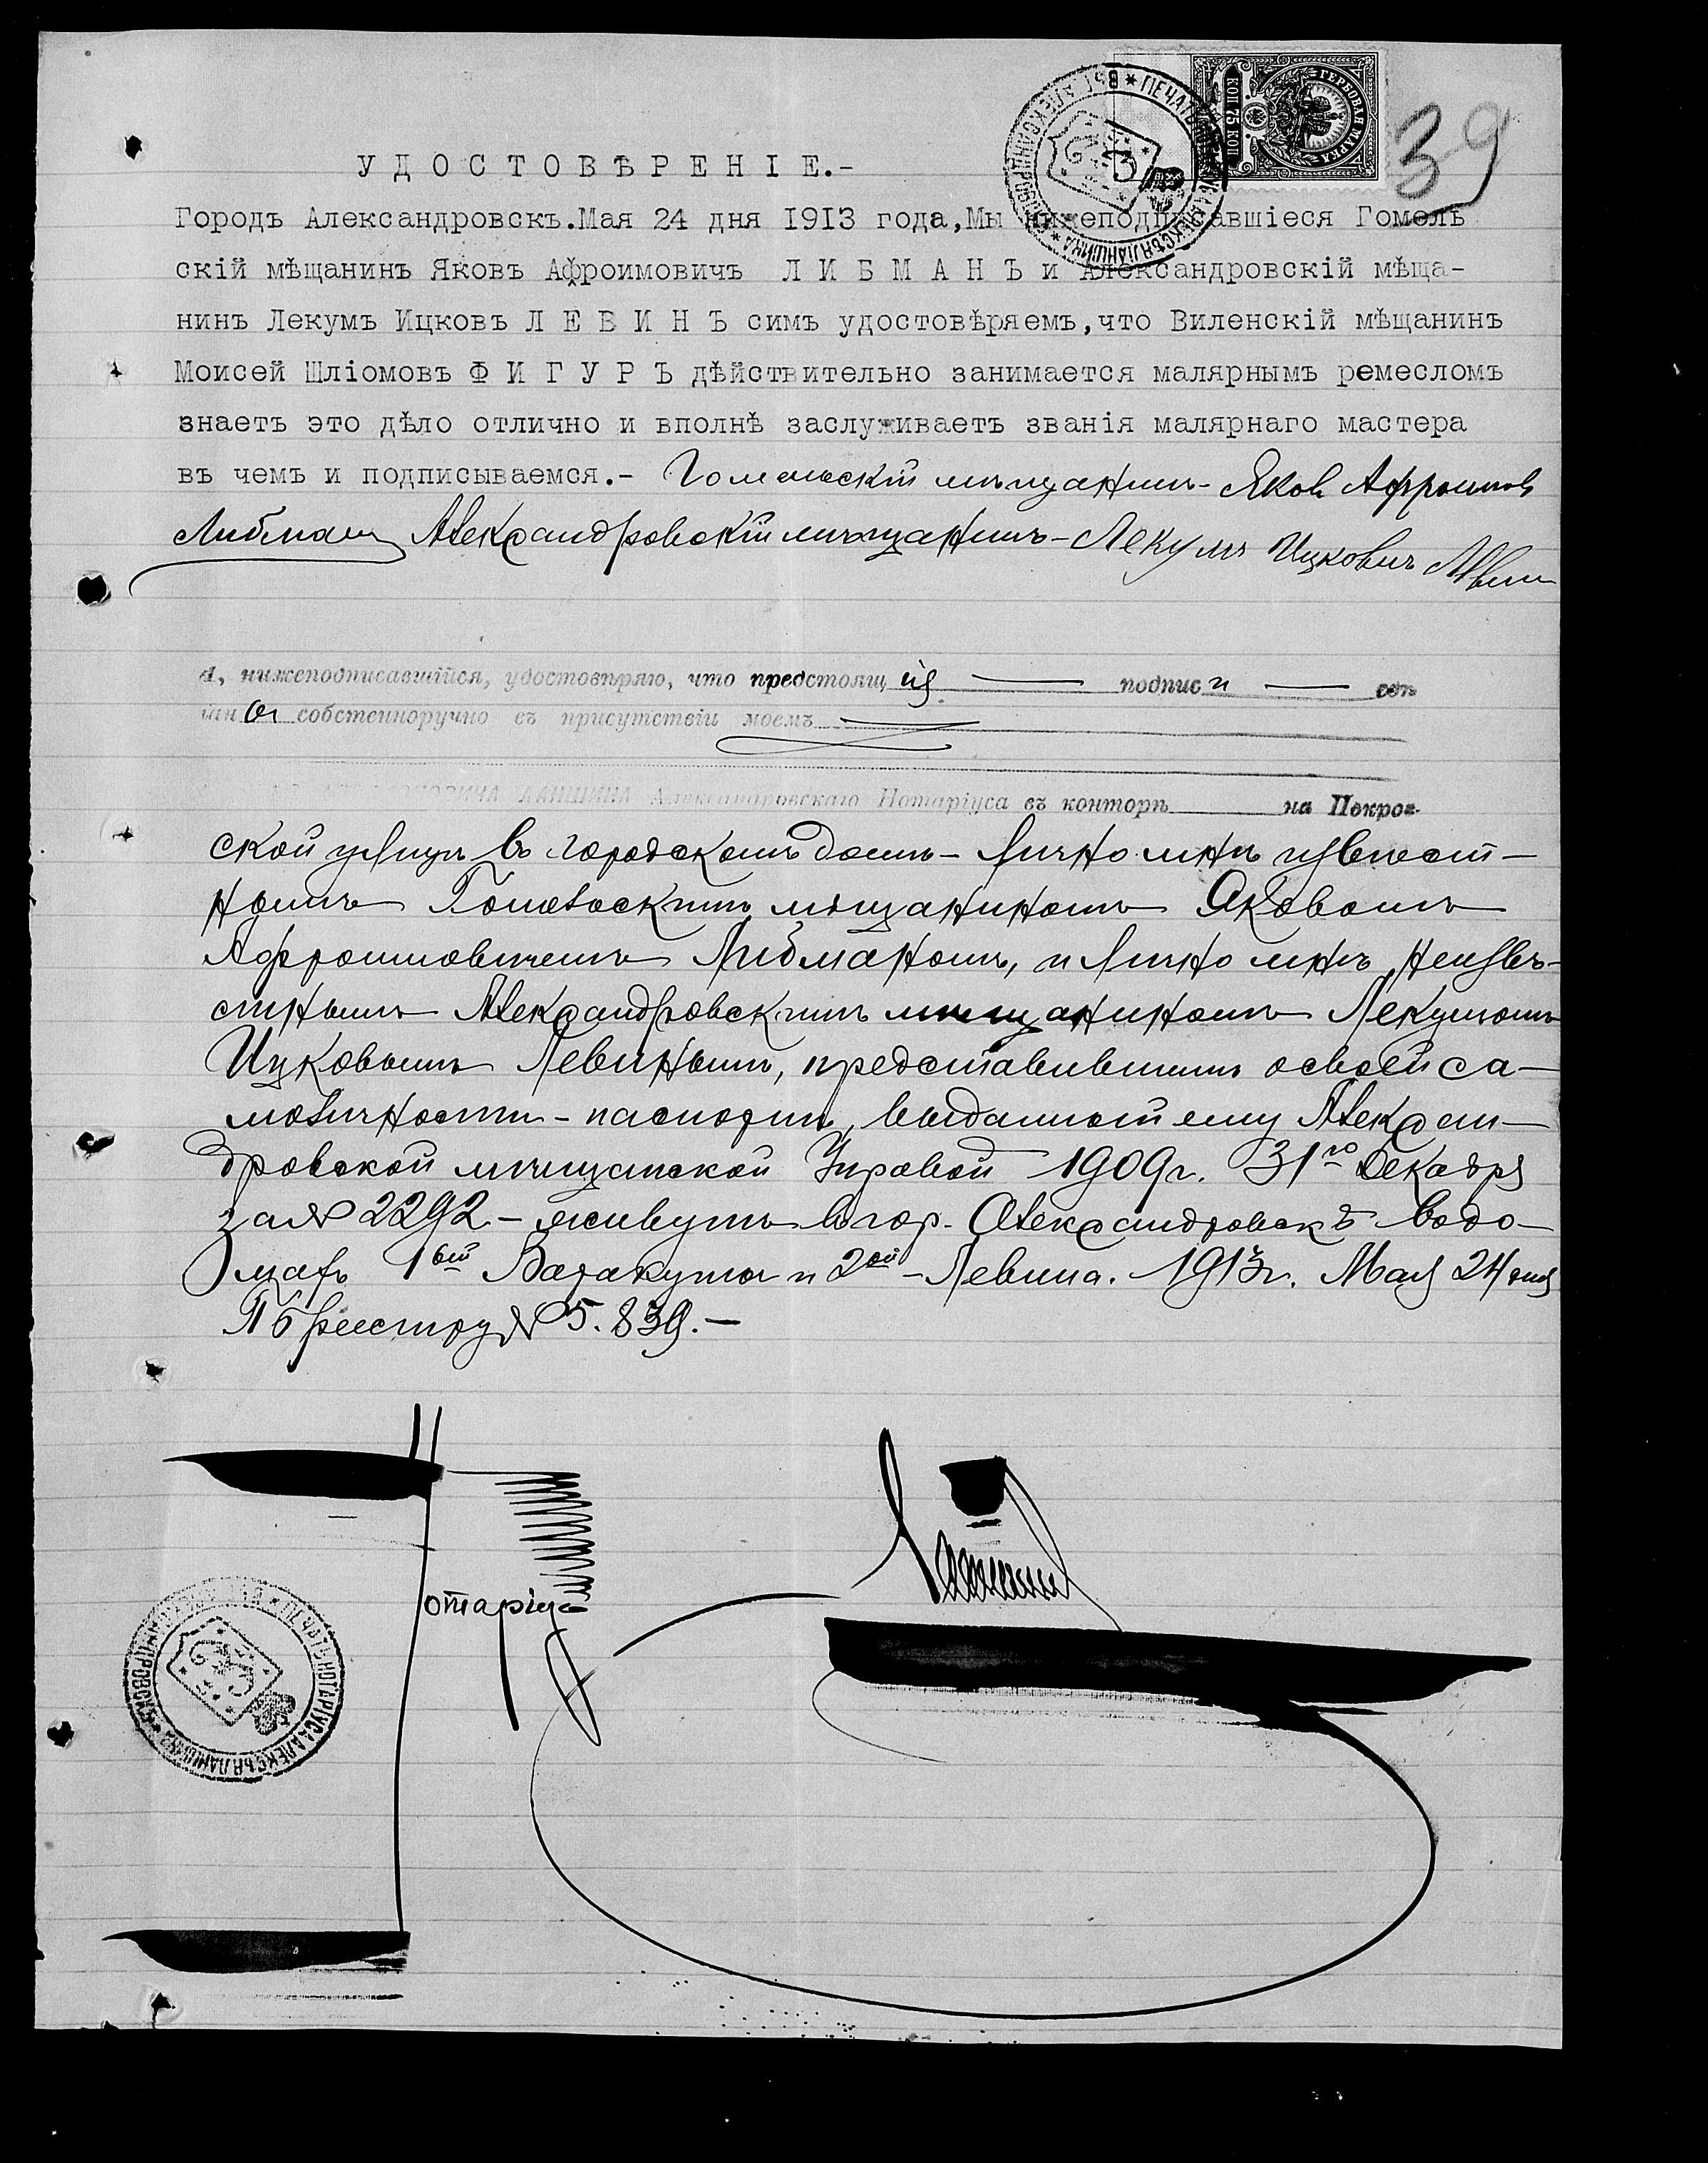 39
ГЕРБОВАЯ МАРКА
КОП 75 КОП
УДОСТОВѢРЕНІЕ.-
Городъ Александровскъ.Мая 24 дня 1913 года,Мы нижеподписавшіеся Гомель
скій мѣщанинъ Яковъ Афроимовичъ ЛИБМАНЪ и Александровскій мѣща-
нинъ Лекумъ Ицковъ ЛЕВИНЪ симъ удостовѣряемъ,что Виленскій мѣщанинъ
Моисей Шліомовъ ФИГУРЪ дѣйствительно занимается малярнымъ ремесломъ
знаетъ это дѣло отлично и вполнѣ заслуживаетъ званія малярнаго мастера
въ чемъ и подписываемся.- Гомельскій мѣщанинъ- Яковъ Афроимовъ
Либманъ Александровскій мѣщанинъ-Лекумъ Ицковичъ Левин
Я, нижеподписавшійся, удостовѣряю, что предстоящія — подписи — сдѣ
ланы собственноручно въ присутствіи моемъ
ЛАНШИНА Александровскаго Нотаріуса въ конторѣ на Покров-
ской улицѣ въ городскомъ домѣ- лично мнѣ извѣст-
нымъ Гомельскимъ мѣщаниномъ Яковомъ
Афроимовичемъ Либманомъ, и лично мнѣ неизвѣ-
стнымъ Александровскимъ мѣщаниномъ Лекумомъ
Ицковымъ Левинымъ, представившимъ о своей са-
моличности- паспортъ, выданный ему Алексан-
дровской мѣщанской Управой 1909г. 31го Декабря
за № 2292.- живутъ въ гор. Александровскѣ въ до-
махъ 1ый и 2ой -Левина. 1913г. Мая 24 дня
По реестру № 5.839.-
Нотаріусъ
Ланшинъ
ПЕЧАТЬ НОТАРІУСА АЛЕКСѢЯ ЛАНШИНА